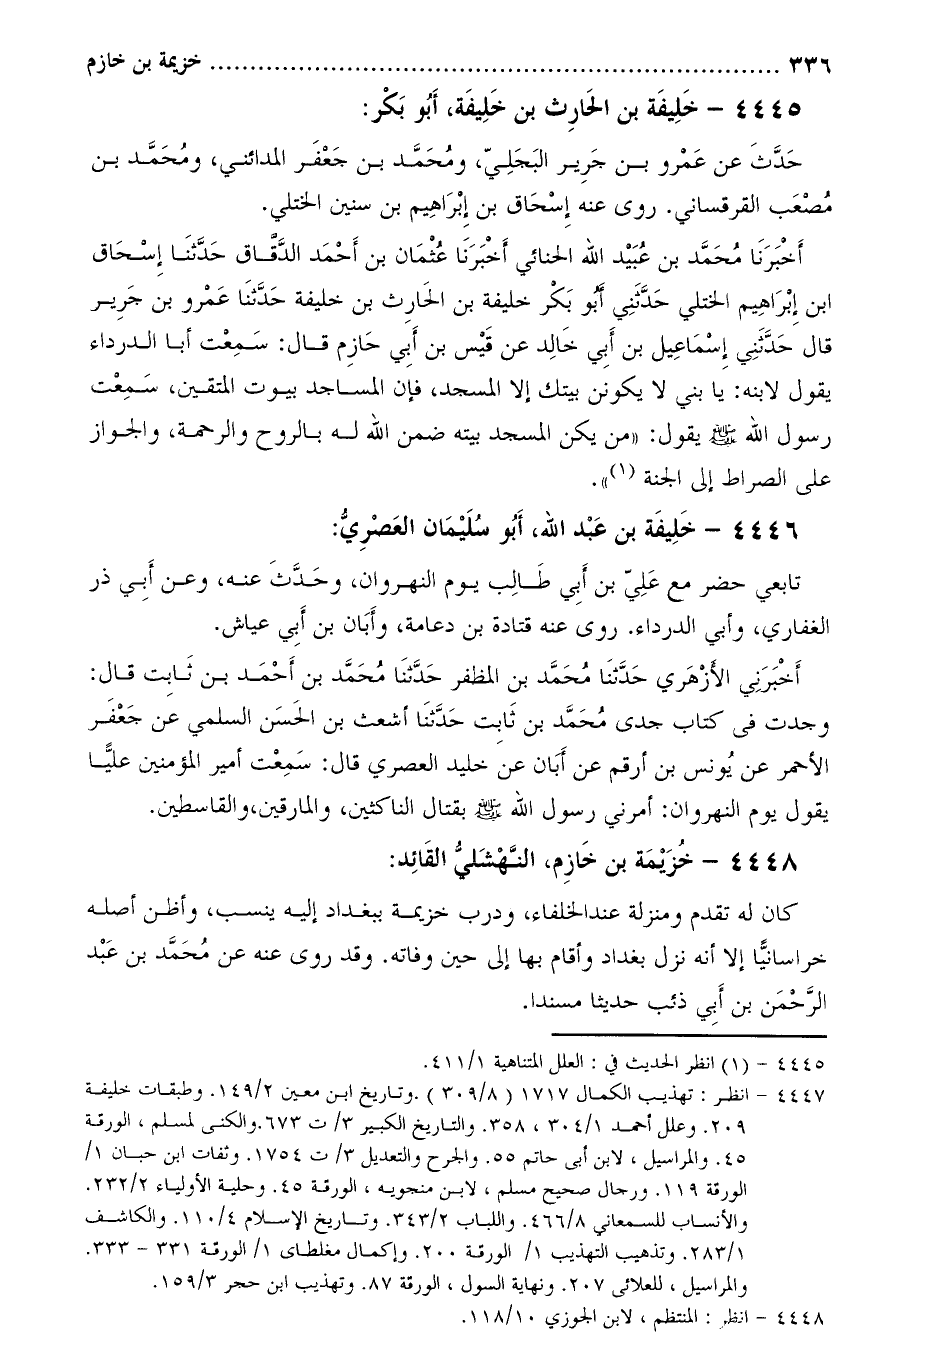 ٣٣٦ ........................................................................ خزيمة بن خازم
٤٤٤٥ – خَلِيفَة بن الحَارِث بن خَلِيفَة، أَبُو بَكْر:
حَدَّثَ عن عَمْرو بـن جَرِير البَجَلِيّ، ومُحَمَّـد بـن جَعْفَر المدائنـي، ومُحَمَّـد بـن
مُصْعَب القرقساني. روى عنه إِسْحَاق بن إِبْرَاهِيم بن سنين الختلي.
أَخْبَرَنَا مُحَمَّد بن عُبَيْد الله الحنائي أَخْبَرَنَا عُثْمَان بن أَحْمَد الدَّقَّـاق حَدَّثَنَـا إِسْـحَاق
ابن إِبْرَاهِيم الختلي حَدَّثَنِي أَبُو بَكْر خليفة بن الحَارِث بن خليفة حَدَّثَنَا عَمْرو بن جَرِيـر
قال حَدَّثَنِي إِسْمَاعِيل بن أَبِي خالِد عن قَيْس بن أَبِي حَازِم قـال: سَـمِعْت أبـا الـدرداء
يقول لابنه: يا بني لا يكونن بيتك إلا المسجد، فإن المسـاجد بيـوت المتقـين، سَـمِعْت
رسول الله ﷺ يقول: «من يكن المسجد بيته ضمن الله لـه بـالروح والرحمـة، والجـواز
على الصراط إلى الجنة (١)».
٤٤٤٦ – خَلِيفَة بن عَبْد الله، أَبُو سُلَيْمَان العَصْرِيُّ:
تابعي حضر مع عَلِيّ بن أَبِي طَـالِب يـوم النهـروان، وحَـدَّثَ عنـه، وعـن أَبـي ذر
الغفاري، وأبي الدرداء. روى عنه قتادة بن دعامة، وأَبَان بن أَبِي عياش.
أَخْبَرَنِي الأَزْهَري حَدَّثَنَا مُحَمَّد بن المظفر حَدَّثَنَا مُحَمَّد بن أَحْمَـد بـن ثَـابت قـال:
وجدت فى كتاب جدى مُحَمَّد بن ثَابِت حَدَّثَنَا أشعث بن الحَسَن السلمي عن جَعْفَـر
الأحمر عن يُونس بن أرقم عن أَبَان عن خليد العصري قال: سَمِعْت أمير المؤمنين عليًّـا
يقول يوم النهروان: أمرني رسول الله ﷺ بقتال الناكثين، والمارقين،والقاسطين.
٤٤٤٨ – خُزَيْمَة بن خَازِم، النَّهْشَلِيُّ القَائِد:
كان له تقدم ومنزلة عندالخلفاء، ودرب خزيمـة ببغـداد إليـه ينسـب، وأظـن أصلـه
خراسانيًّا إلا أنه نزل بغداد وأقام بها إلى حين وفاته. وقد روى عنه عن مُحَمَّد بن عَبْد
الرَّحْمَن بن أَبِي ذئب حديثا مسندا.
٤٤٤٥ – (١) انظر الحديث في : العلل المتناهية ٤١١/١.
٤٤٤٧ – انظـر : تهذيـب الكمـال ١٧١٧ ( ٣٠٩/٨ ) .وتـاريخ ابـن معـين ١٤٩/٢. وطبقـات خليفـة
٢٠٩. وعلل أحمـد ٣٠٤/١ ، ٣٥٨. والتـاريخ الكبير ٣/ ت ٦٧٣.والكنـى لمسـلم ، الورقـة
٤٥. والمراسيل ، لابن أبى حاتم ٥٥. والجرح والتعديل ٣/ ت ١٧٥٤. وثقات ابن حبان ١/
الورقة ١١٩. ورجال صحيح مسلم ، لابـن منجويـه ، الورقـة ٤٥. وحلية الأولياء ٢٣٢/٢.
والأنساب للسمعاني ٤٦٦/٨. واللباب ٣٤٣/٢. وتـاريخ الإسـلام ١١٠/٤. والكاشـف
٢٨٣/١. وتذهيب التهذيب ١/ الورقة ٢٠٠. وإكمـال مغلطـاى ١/ الورقـة ٣٣١ – ٣٣٣.
والمراسيل ، للعلائى ٢٠٧. ونهاية السول ، الورقة ٨٧. وتهذيب ابن حجر ١٥٩/٣.
٤٤٤٨ – انظر : المنتظم ، لابن الجوزي ١١٨/١٠.